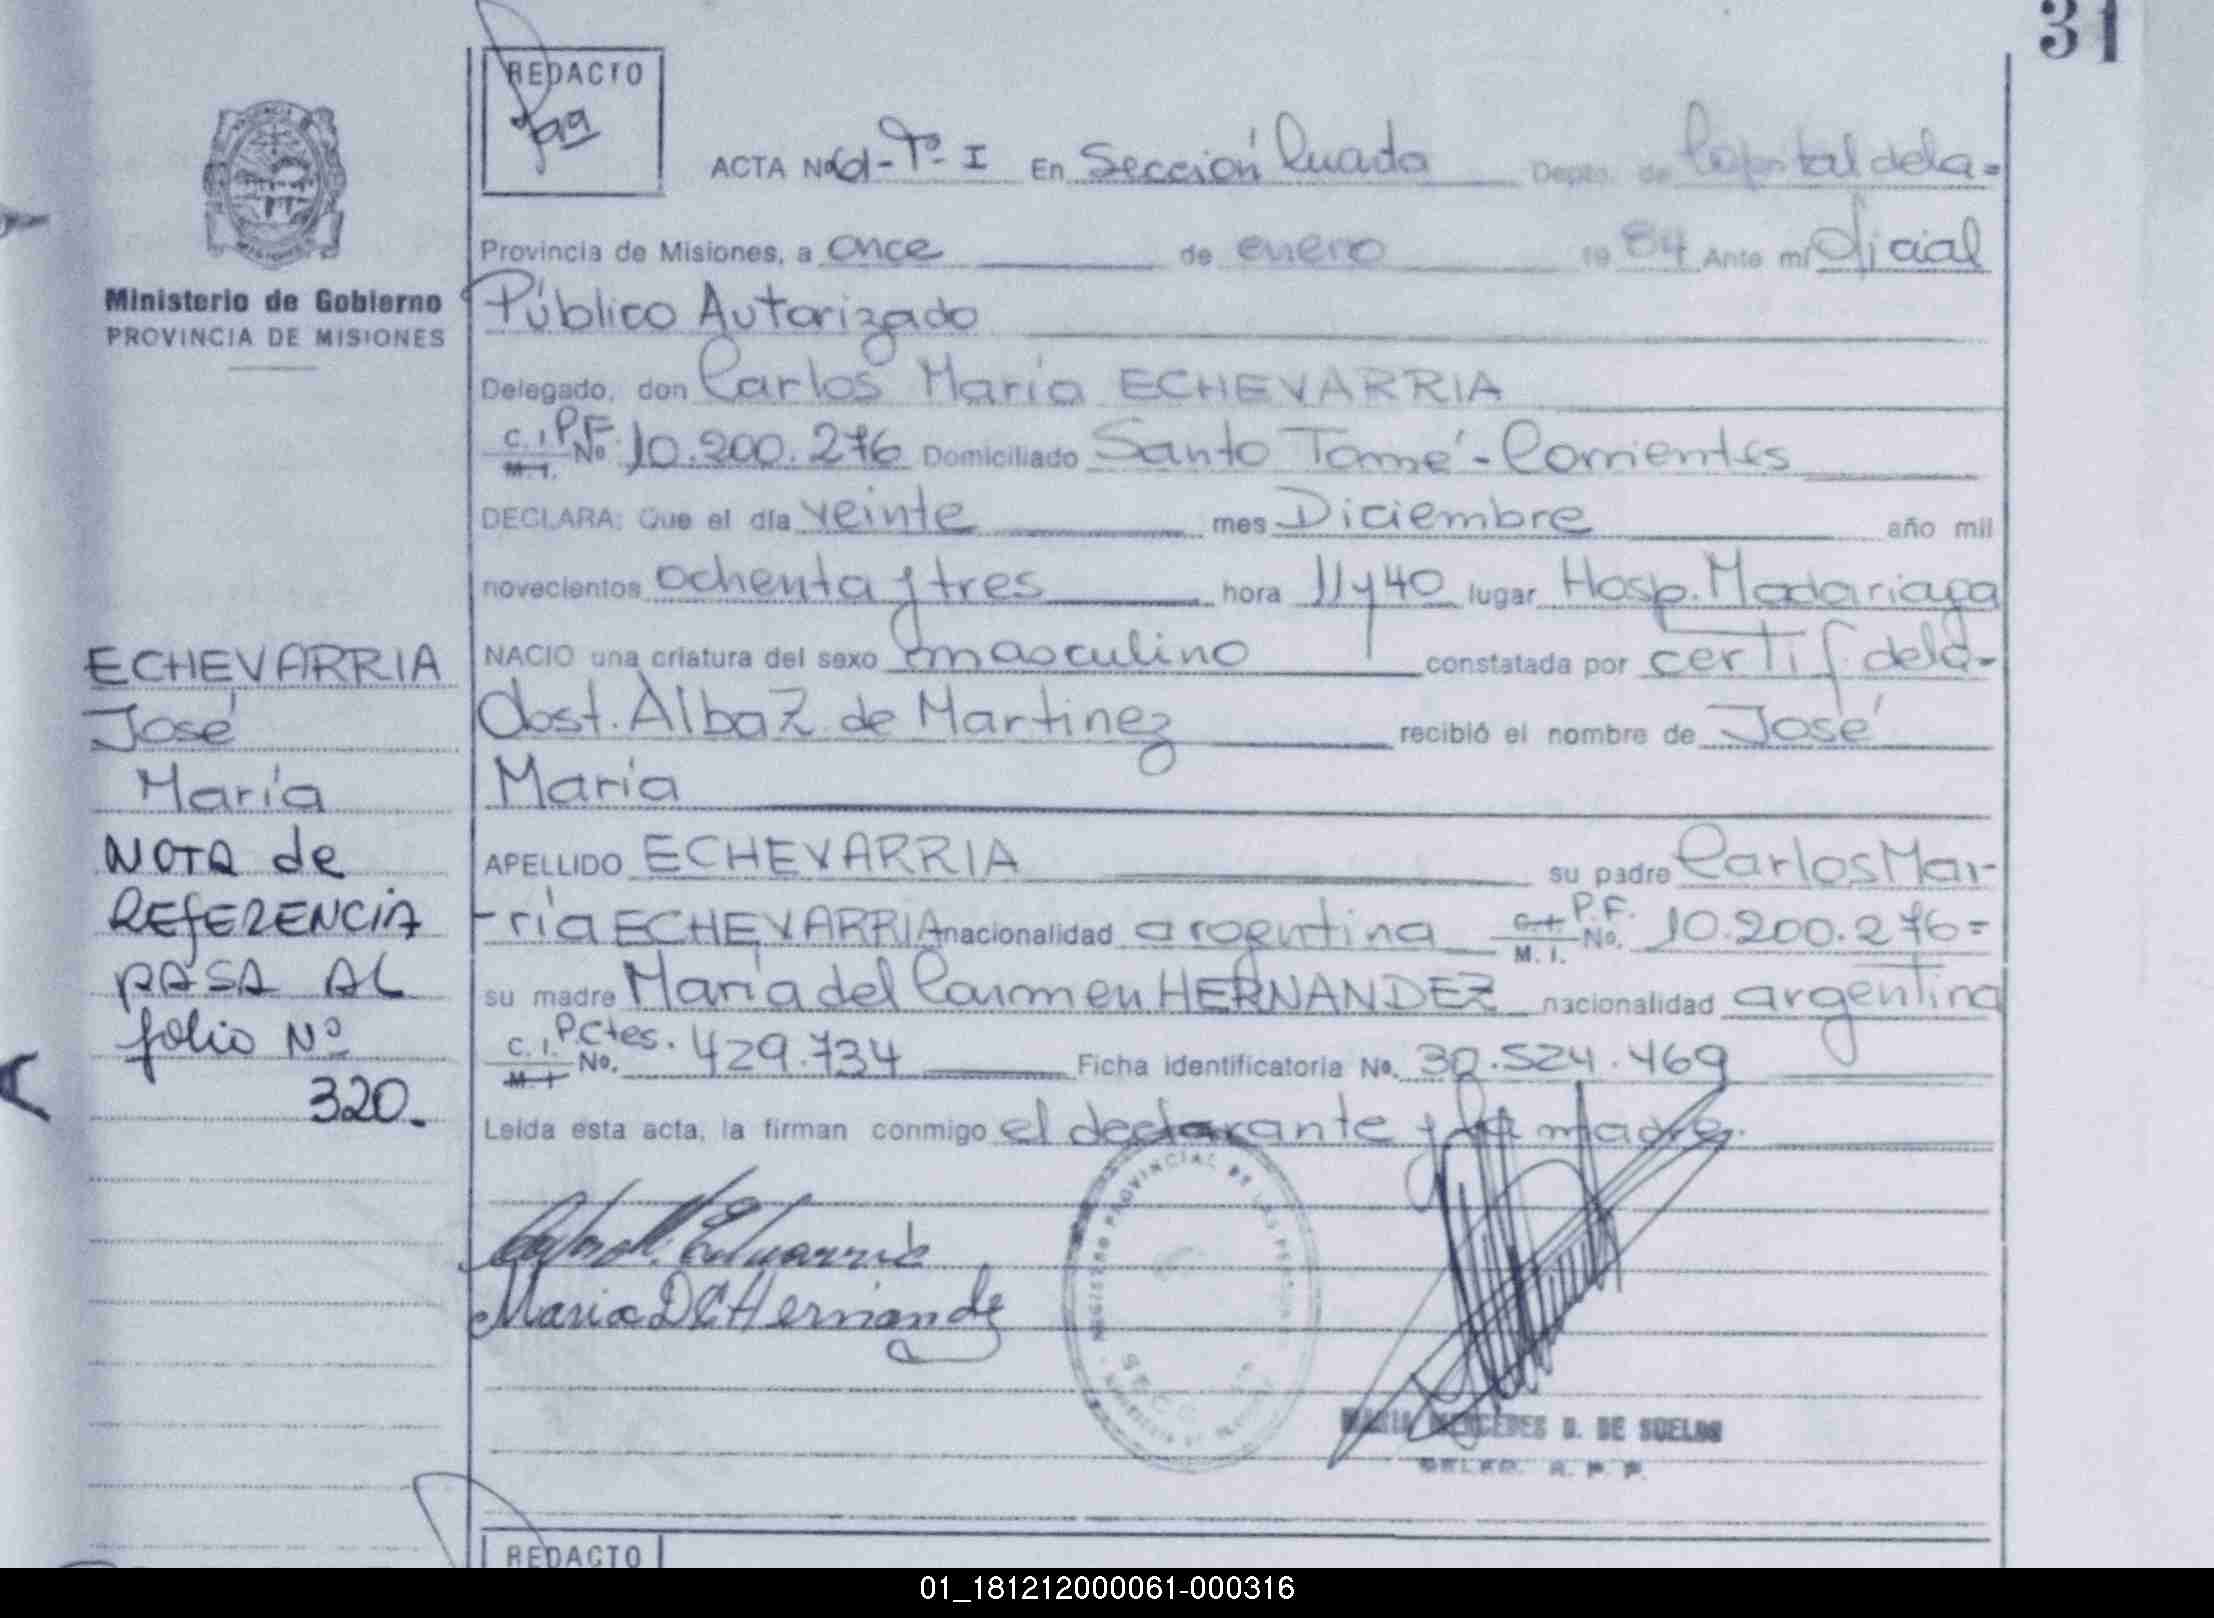 31
REDACTO
ACTA Nº 61-Tº-I En Sección Cuarta Depto. de Capital de la=
Provincia de Misiones, a once de enero 1984 Ante mi Oficial
Público Autorizado
Delegado, don Carlos María ECHEVARRIA
C. I. P.F. Nº 10.200.276 Domiciliado Santo Tomé-Corrientes
M. I.
DECLARA: Que el día veinte mes Diciembre año mil
novecientos ochenta y tres hora 11 y 40 lugar Hosp. Madariaga
NACIO una criatura del sexo masculino constatada por certif. de la-
Obst. Alba Z. de Martinez recibió el nombre de José
María
APELLIDO ECHEVARRIA su padre Carlos Mar-
-ría ECHEVARRIA nacionalidad argentina C. I. P.F. No. 10.200.276=
M. I.
su madre María del Carmen HERNANDEZ nacionalidad argentina
C. I. P.Ctes. No. 429.734 Ficha identificatoria No. 30.524.469
M. I
Leída esta acta, la firman conmigo el declarante y la madre.
Carlos M. Echevarria
Maria D C Hernandez
REGISTRO PROVINCIAL DE LAS PERSONAS
MARIA MERCEDES D. DE SUELDO
DELEG. R. P. P.
Ministerio de Gobierno
PROVINCIA DE MISIONES
ECHEVARRIA
José
María
NOTA de
REFERENCIA
PASA AL
folio Nº
320.
REDACTO
01_181212000061-000316